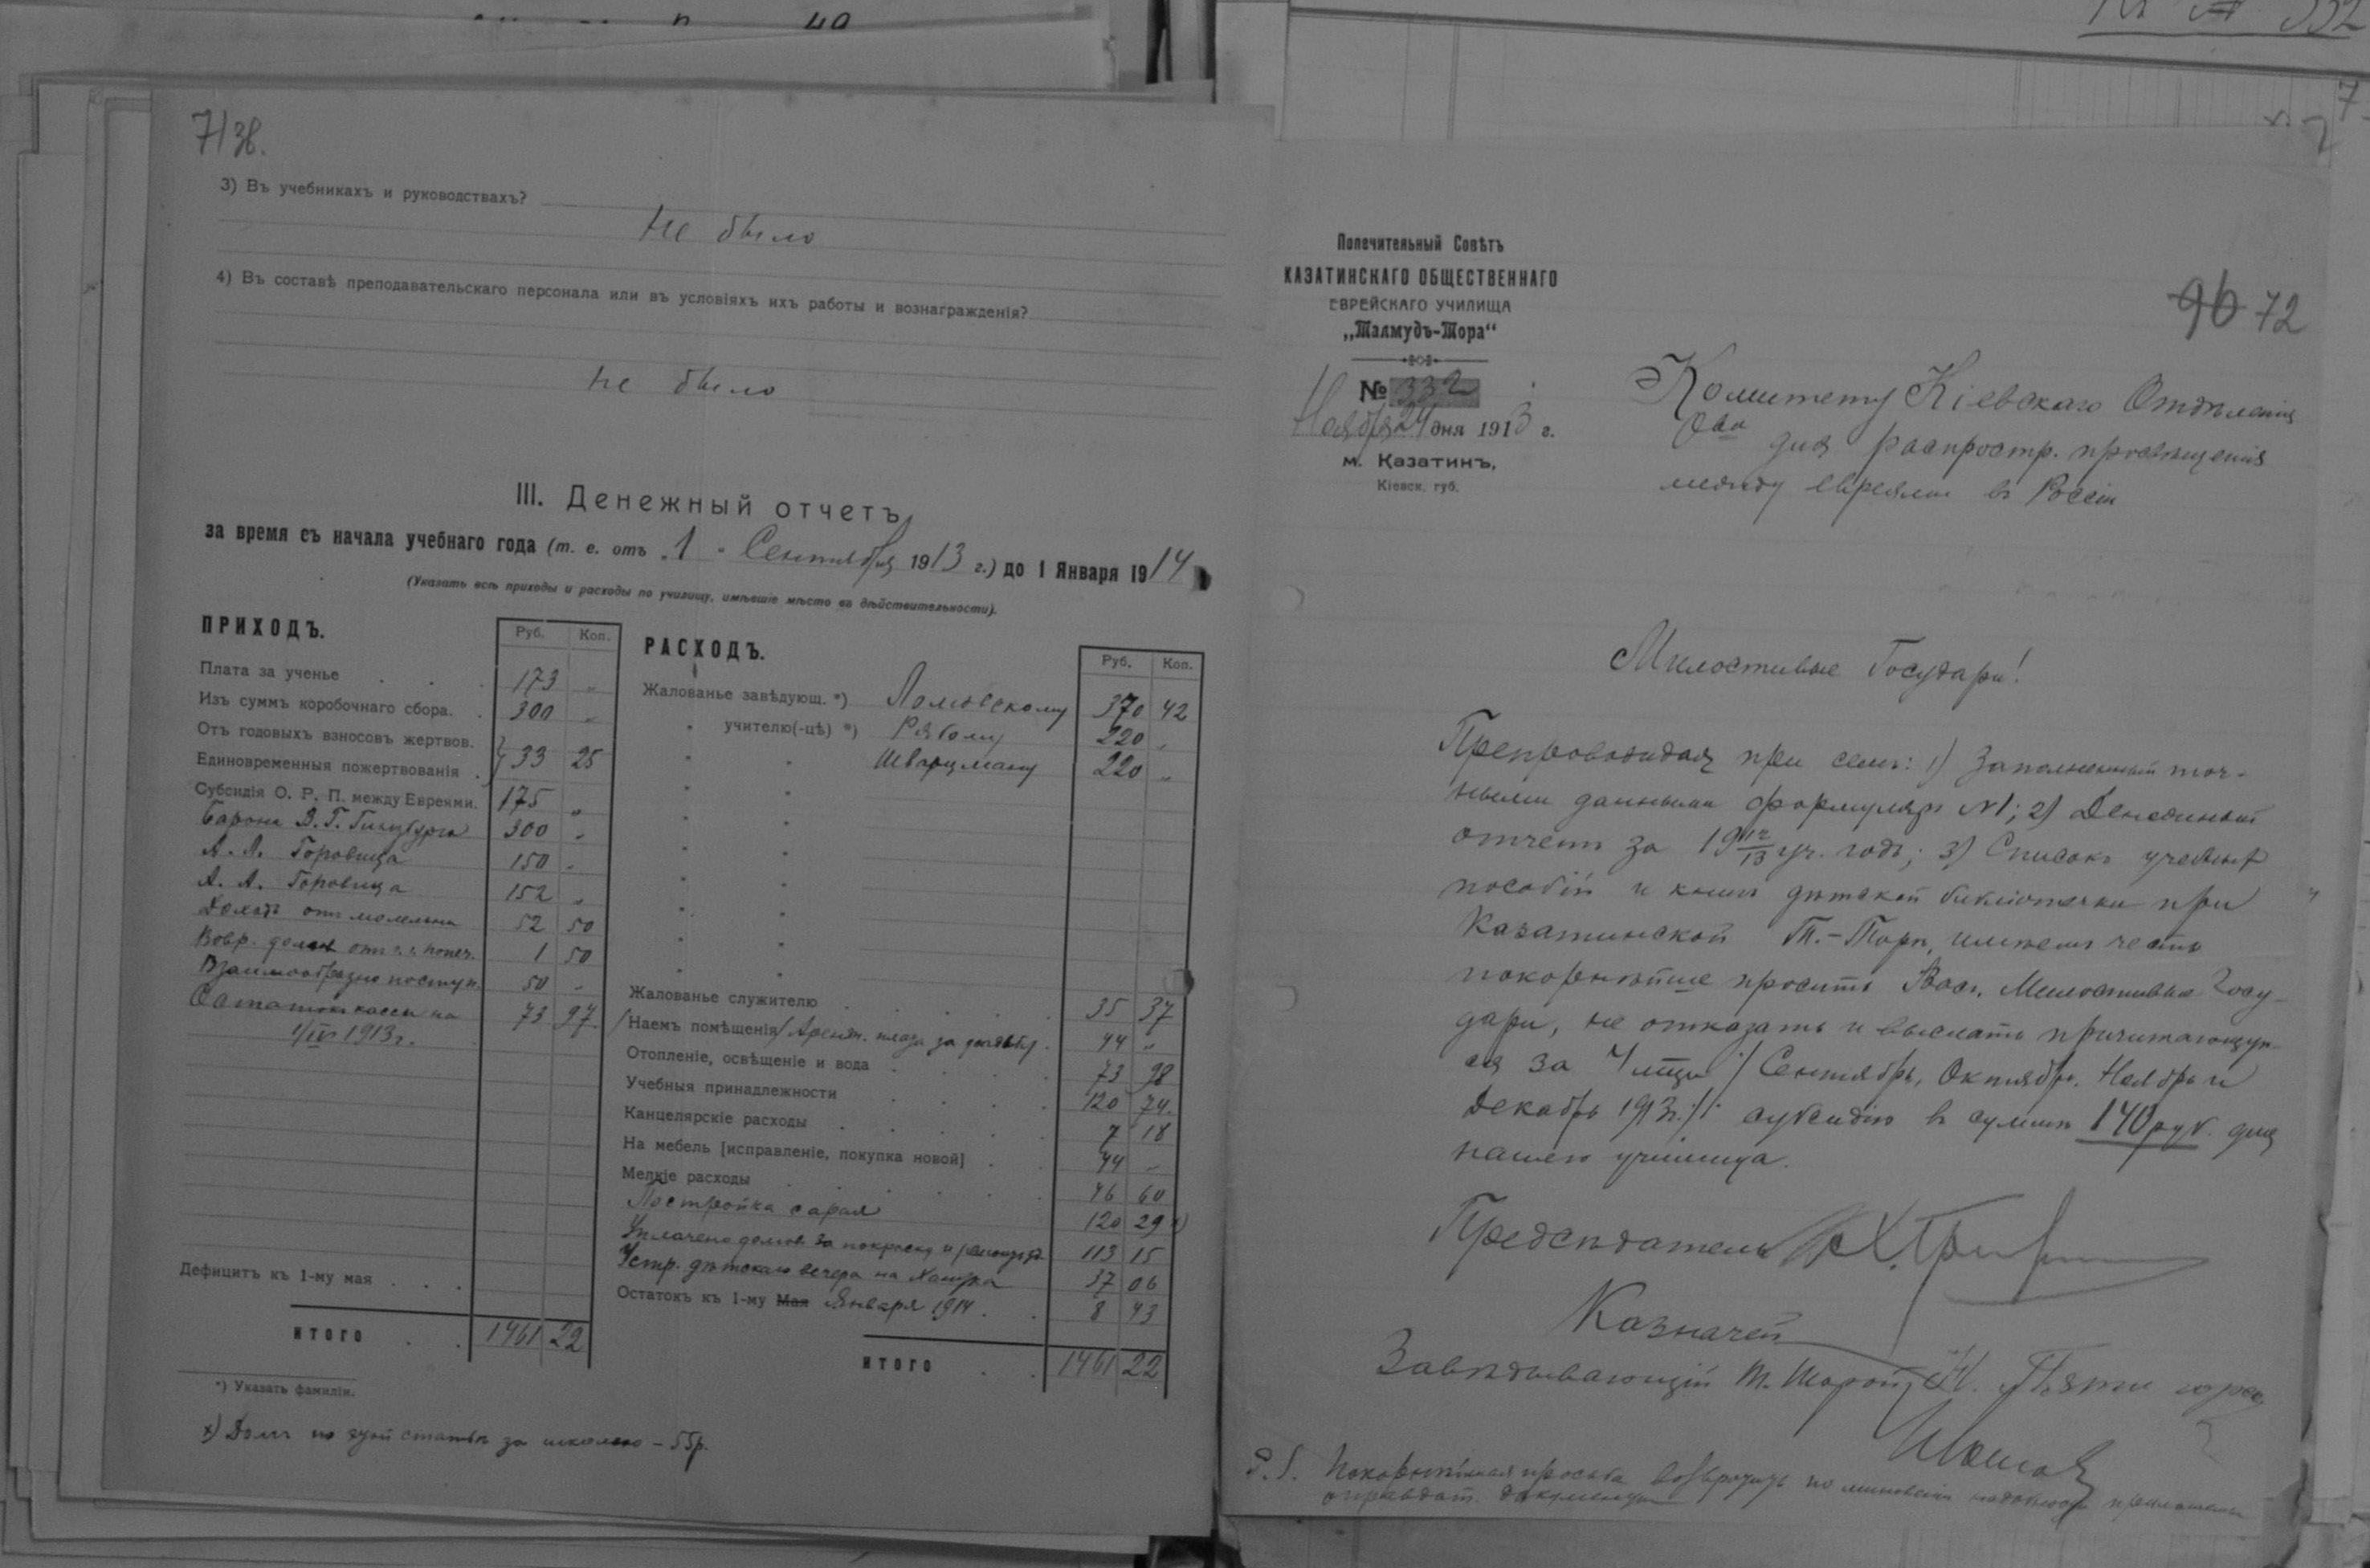 71 зв.
3) Въ учебникахъ и руководствахъ?
Не было
4) Въ составѣ преподавательскаго персонала или въ условіяхъ ихъ работы и вознагражденія?
Не было
III. Денежный отчетъ
за время съ начала учебнаго года (т. е. отъ „1" Сентября 1913 г.) до 1 Января 1914
(Указать всѣ приходы и расходы по училищу, имѣвшіе мѣсто въ дѣйствительности).
ПРИХОДЪ.
Руб. Коп.
Плата за ученье 173 „
Изъ суммъ коробочнаго сбора. 300 „
Отъ годовыхъ взносовъ жертвов.
Единовременныя пожертвованія } 33 25
Субсидія О. Р. П. между Евреями. 175 „
Барона В. Г. Гинцбурга 300 „
А. Л. Горовица 150 „
А. А. Горовица 152 „
Доходъ отъ молельни 52 50
Возвр. отъ попеч. 1 50
Взаимообразно поступ. 50 „
Остатокъ кассы на 73 97
1/IX 1913 г.
Дефицитъ къ 1-му мая
ИТОГО 1461 22
*) Указать фамиліи.
x) Долгъ по этой статьѣ за школою – 55 р.
РАСХОДЪ.
Руб. Коп.
Жалованье завѣдующ. *) 370 42
„ учителю(-цѣ) *) Рябому 220 „
„ „ Шварцману 220 „
Жалованье служителю 35 37
Наемъ помѣщенія 44 „
Отопленіе, освѣщеніе и вода 73 98
Учебныя принадлежности 120 74
Канцелярскіе расходы 7 18
На мебель [исправленіе, покупка новой] 44 „
Мелкіе расходы 46 60
Постройка сарая 120 29 x)
Уплачено за покраску и 113 15
Устр. дѣтскаго вечера на Ханука 37 06
Остатокъ къ 1-му Мая Января 1914 8 43
ИТОГО 1461 22
332
7
Попечительный Совѣтъ
КАЗАТИНСКАГО ОБЩЕСТВЕННАГО
ЕВРЕЙСКАГО УЧИЛИЩА
„Талмудъ-Тора"
№ 332
Ноября 24 дня 1913 г.
м. Казатинъ,
Кіевск. губ.
96 72
Комитету Кіевскаго Отдѣленія
О-ва для распростр. просвѣщенія
между евреями въ Россіи
Милостивые Государи!
Препровождая при семъ: 1) Заполненный точ-
ными данными формуляръ №1; 2) Денежный
отчетъ за 1912/13 уч. годъ; 3) Списокъ учебныхъ
пособій и книгъ дѣтской библіотечки при
Казатинской Т.-Торѣ, имѣемъ честь
покорнѣйше просить Васъ, Милостивые Госу-
дари, не отказать и выслать причитающую-
ся за 4 мѣсяца /Сентябрь, Октябрь, Ноябрь и
Декабрь 1913 г./ субсидію въ суммѣ 140 руб. для
нашего училища.
Предсѣдатель
Казначей
Завѣдывающій Т. Торой
P. S. Покорнѣйшая просьба возвратить по минованіи надобности
оправдат. документы